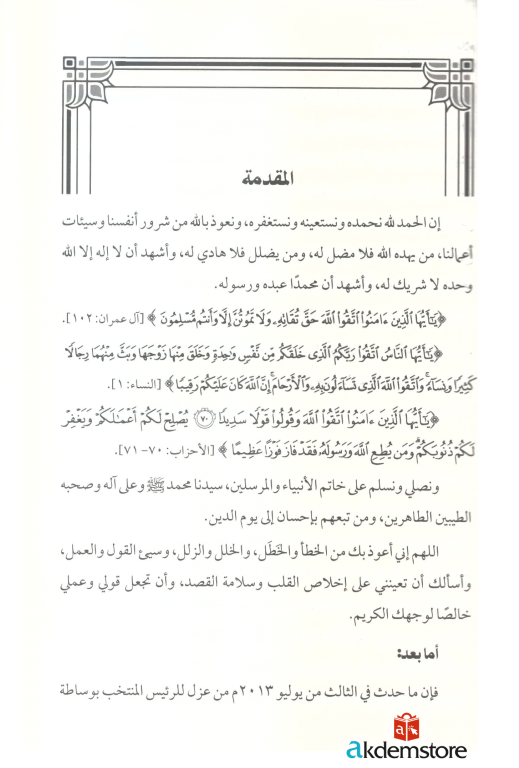 المقدمة
إن الحمد لله نحمده ونستعينه ونستغفره، ونعوذ بالله من شرور أنفسنا وسيئات
أعمالنا، من يهده الله فلا مضل له، ومن يضلل فلا هادي له، وأشهد أن لا إله إلا الله
وحده لا شريك له، وأشهد أن محمدًا عبده ورسوله.
﴿يَٰٓأَيُّهَا الَّذِينَ ءَامَنُوا اتَّقُوا اللَّهَ حَقَّ تُقَانِهِۦ وَلَا تَمُوتُنَّ إِلَّا وَأَنتُم مُّسْلِمُونَ﴾ [آل عمران: ١٠٢].
﴿يَٰٓأَيُّهَا النَّاسُ اتَّقُوا رَبَّكُمُ الَّذِى خَلَقَكُم مِّن نَّفْسٍ وَٰحِدَةٍ وَخَلَقَ مِنْهَا زَوْجَهَا وَبَثَّ مِنْهُمَا رِجَالًا
كَثِيرًا وَنِسَآءً ۚ وَاتَّقُوا اللَّهَ الَّذِى تَسَآءَلُونَ بِهِۦ وَالْأَرْحَامَ ۚ إِنَّ اللَّهَ كَانَ عَلَيْكُمْ رَقِيبًا﴾ [النساء: ١].
﴿يَٰٓأَيُّهَا الَّذِينَ ءَامَنُوا اتَّقُوا اللَّهَ وَقُولُوا قَوْلًا سَدِيدًا ﴿٧٠﴾ يُصْلِحْ لَكُمْ أَعْمَٰلَكُمْ وَيَغْفِرْ
لَكُمْ ذُنُوبَكُمْ ۗ وَمَن يُطِعِ اللَّهَ وَرَسُولَهُۥ فَقَدْ فَازَ فَوْزًا عَظِيمًا﴾ [الأحزاب: ٧٠- ٧١].
ونصلي ونسلم على خاتم الأنبياء والمرسلين، سيدنا محمد ﷺ وعلى آله وصحبه
الطيبين الطاهرين، ومن تبعهم بإحسان إلى يوم الدين.
اللهم إني أعوذ بك من الخطأ والخَطَل، والخلل والزلل، وسيئ القول والعمل،
وأسألك أن تعينني على إخلاص القلب وسلامة القصد، وأن تجعل قولي وعملي
خالصًا لوجهك الكريم.
أما بعد:
فإن ما حدث في الثالث من يوليو ٢٠١٣م من عزل للرئيس المنتخب بوساطة
akdemstore